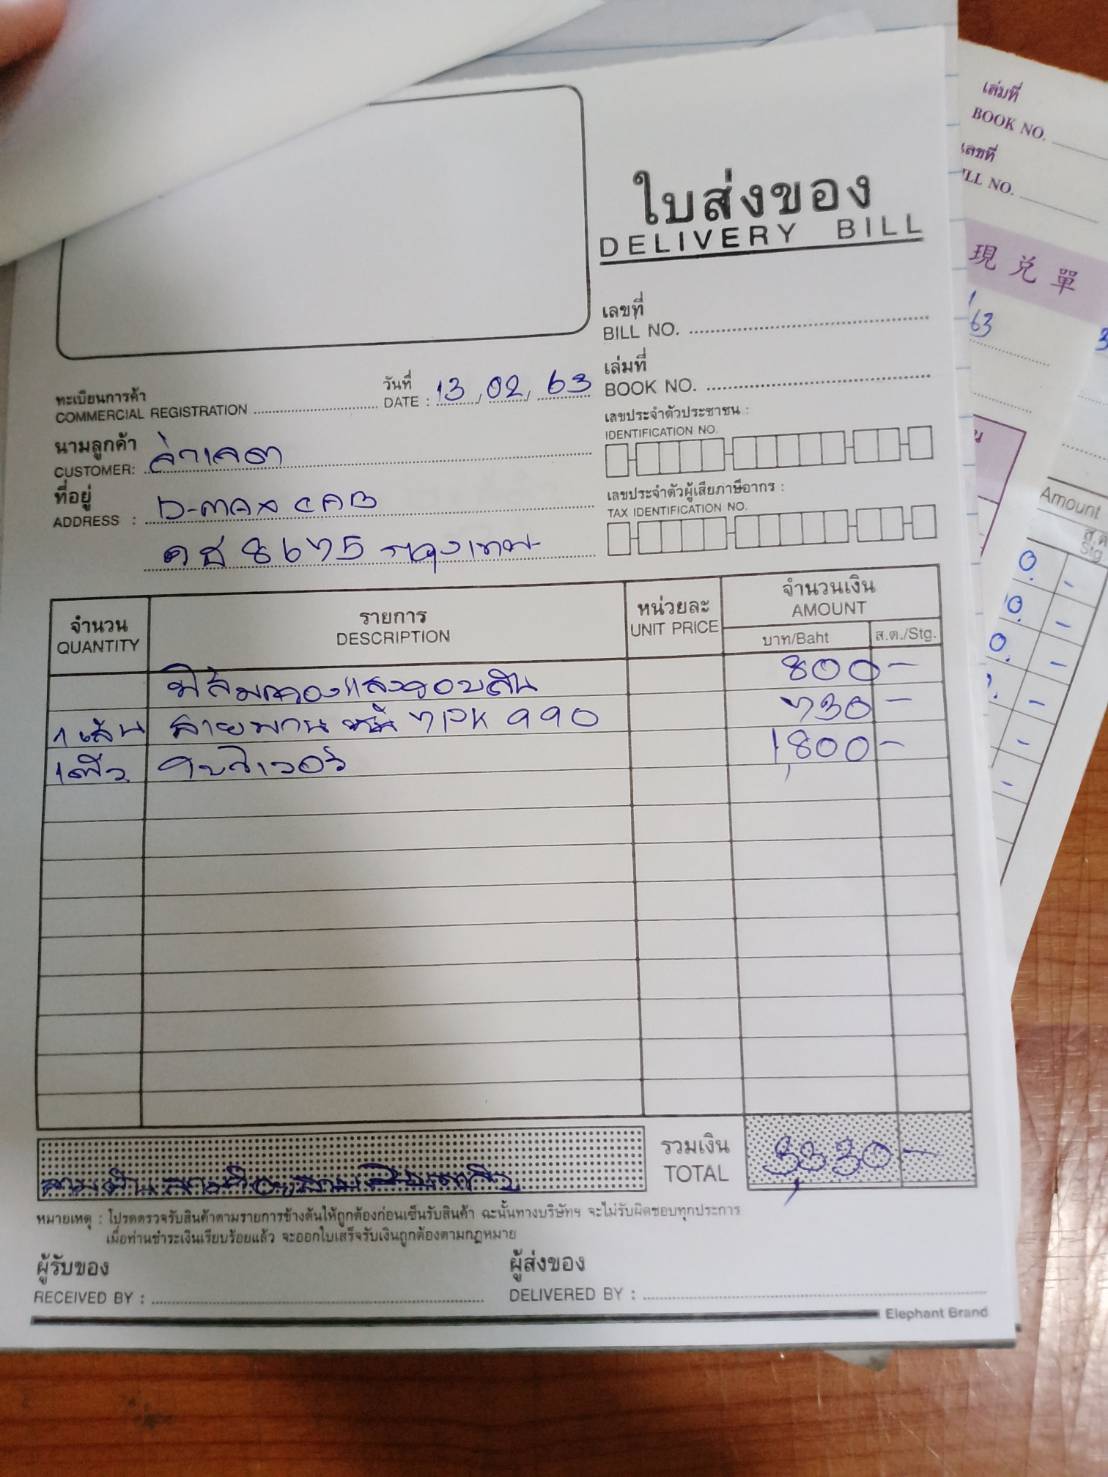 ใบส่งของ
DELIVERY BILL
เลขที่
BILL NO.
เล่มที่
BOOK NO.
ทะเบียนการค้า
COMMERCIAL REGISTRATION
วันที่
DATE : 13, 02, 63
เลขประจำตัวประชาชน :
IDENTIFICATION NO.
นามลูกค้า
CUSTOMER:
ที่อยู่
ADDRESS : D-max CAB
8675 กรุงเทพ
เลขประจำตัวผู้เสียภาษีอากร :
TAX IDENTIFICATION NO.
จำนวน รายการ หน่วยละ จำนวนเงิน
QUANTITY DESCRIPTION UNIT PRICE AMOUNT
บาท/Baht ส.ต./Stg.
800 -
1 เส้น สายพาน 7PK 990 730 -
1 ตัว 1,800 -
รวมเงิน
TOTAL 3,330 -
หมายเหตุ : โปรดตรวจรับสินค้าตามรายการข้างต้นให้ถูกต้องก่อนเซ็นรับสินค้า ฉะนั้นทางบริษัทฯ จะไม่รับผิดชอบทุกประการ
เมื่อท่านชำระเงินเรียบร้อยแล้ว จะออกใบเสร็จรับเงินถูกต้องตามกฎหมาย
ผู้รับของ
RECEIVED BY :
ผู้ส่งของ
DELIVERED BY :
Elephant Brand
เล่มที่
BOOK NO.
เลขที่
ILL NO.
現兌單
63
Amount
ส.ต.
Stg.